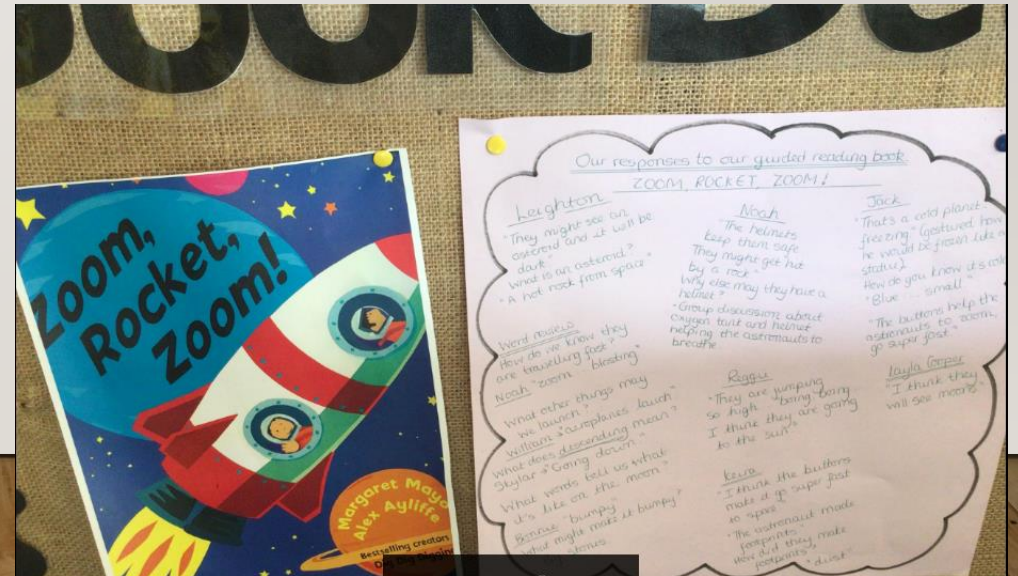 Zoom,
Rocket,
Zoom!
Margaret Mayo
Alex Ayliffe
Bestselling creators
Dig Dig Digging
Our responses to our guided reading book.
ZOOM, ROCKET, ZOOM!
Leighton
"They might see an
asteroid and it will be
dark"
What is an asteroid?
"A hot rock from space"
Word review
How do we know they
are travelling fast?
Noah "zoom" "blasting"
What other things may
we launch?
William "aeroplanes launch"
What does descending mean?
Skylar "Going down"
What words tell us what
it's like on the moon?
Bonnie "bumpy"
What might make it bumpy?
Noah
"The helmets
keep them safe
They might get hit
by a rock"
Why else may they have a
helmet?
*Group discussion about
oxygen tank and helmet
helping the astronauts to
breathe
Reggu
"They are jumping
so high "boing boing"
I think they are going
to the sun"
"I think the buttons
make it go super fast
to space"
"The astronaut made
footprints"
How did they make
footprints? "dust"
Jack
"That's a cold planet -
freezing" (gestured how
he would be frozen like a
statue)
How do you know it's
"Blue ... small"
"The buttons help the
astronauts to zoom,
go super fast"
Layla Cooper
"I think they
will see moons"